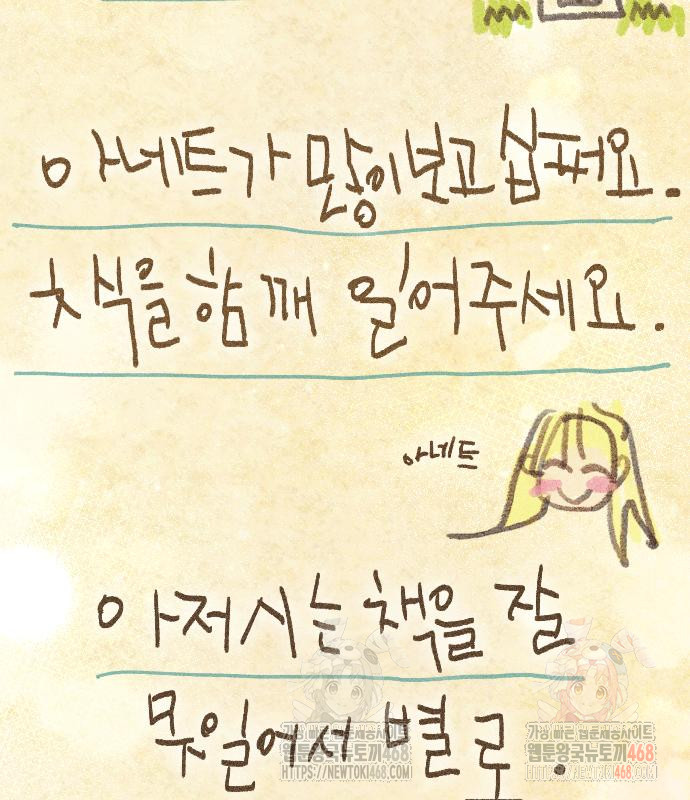 아네트가 많이보고십퍼요.
책을함께 일어주세요.
아네트
아저시는책을 잘
못일어서 별로.
가장 빠른 웹툰제공사이트
웹툰왕국뉴토끼468
HTTPS://NEWTOKI468.COM
가장 빠른 웹툰제공사이트
웹툰왕국뉴토끼468
HTTPS://NEWTOKI468.COM